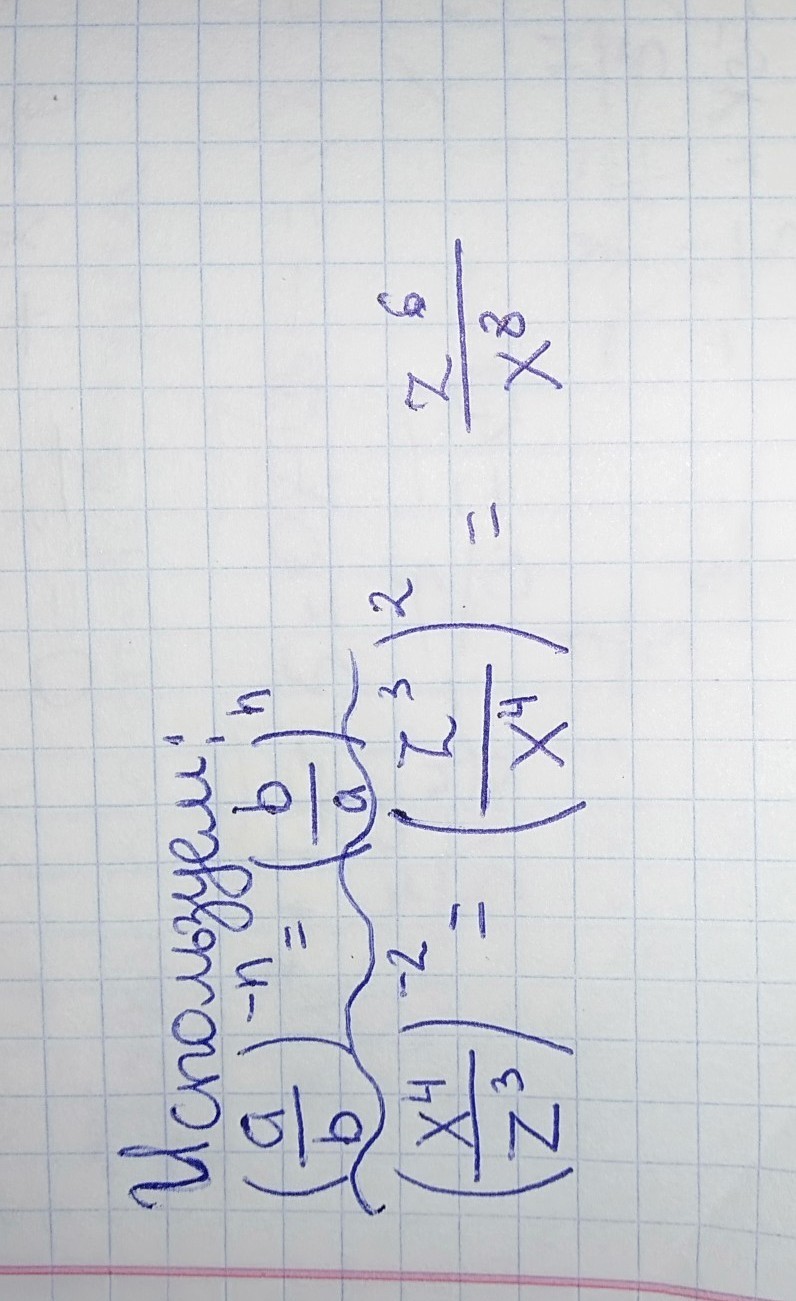 Используем:
(a/b)⁻ⁿ = (b/a)ⁿ
(x⁴/z³)⁻² = (z³/x⁴)² = z⁶/x⁸